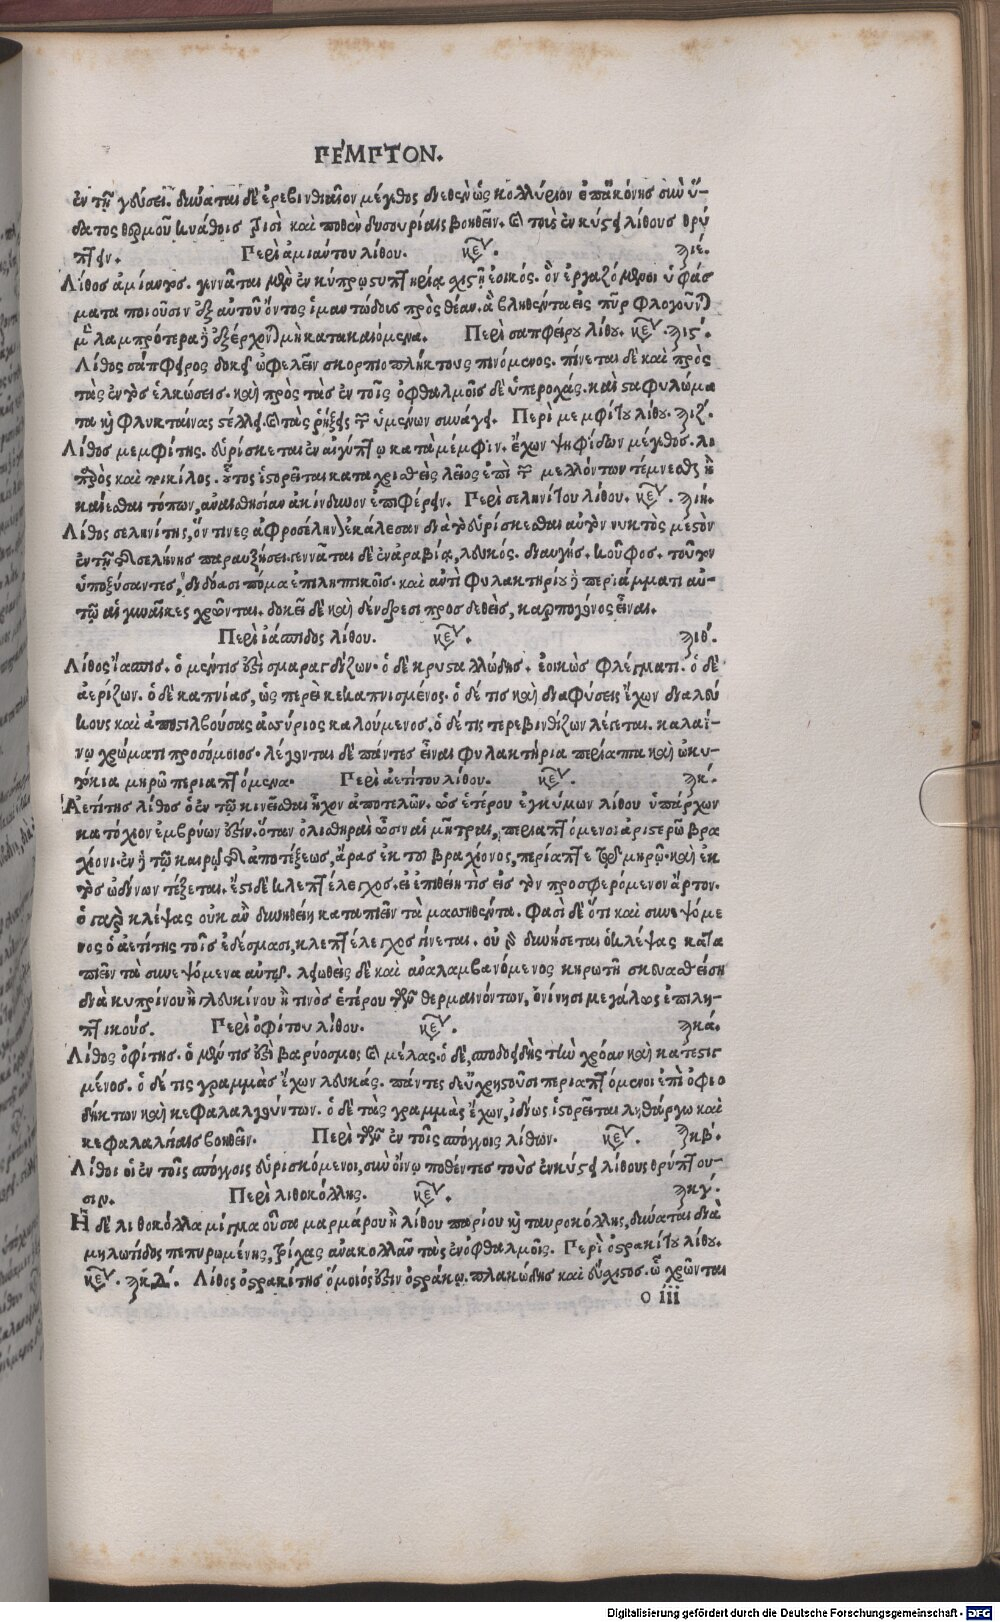 ΠΕΜΠΤΟΝ.
ἐν τῇ γεύσει. δύναται δὲ ἐρεβινθιαῖον μέγεθος διεθὲν ὡς κολλύριον ἐπ' ἀκόνης σὺν ὕ-
δατος θερμοῦ κυάθοις τρισὶ καὶ ποθὲν δυσουρίαις βοηθεῖν. καὶ τοὺς ἐν κύστει λίθους θρύ
πτειν. Περὶ ἀμιάντου λίθου. κεφ. ριε.
Λίθος ἀμίαντος. γεννᾶται μὲν ἐν κύπρῳ στυπτηρίᾳ χιστῇ ἐοικός. ὃν ἐργαζόμενοι ὑφάσ
ματα ποιοῦσιν ἐξ αὐτοῦ ὄντος ἱμαντώδους πρὸς θέαν. ἃ βληθέντα εἰς πῦρ φλογοῦνται
μὲν λαμπρότερα δὲ ἐξέρχονται μὴ κατακαιόμενα. Περὶ σαπφείρου λίθου. κεφ. ρις.
Λίθος σάπφειρος δοκεῖ ὠφελεῖν σκορπιοπλήκτους πινόμενος. πίνεται δὲ καὶ πρὸς
τὰς ἐντὸς ἑλκώσεις. καὶ πρὸς τὰς ἐν τοῖς ὀφθαλμοῖς δὲ ὑπεροχάς. καὶ σταφυλώμα
τα καὶ φλυκταίνας στέλλει. καὶ τὰς ῥήξεις τῶν ὑμένων συνάγει. Περὶ μεμφίτου λίθου. ριζ.
Λίθος μεμφίτης. εὑρίσκεται ἐν αἰγύπτῳ κατὰ μέμφιν. ἔχων ψηφίδων μέγεθος. λι
παρὸς καὶ ποικίλος. οὗτος ἱστορεῖται καταχρισθεὶς λεῖος ἐπὶ τῶν μελλόντων τέμνεσθαι ἢ
καίεσθαι τόπων, ἀναισθησίαν ἀκίνδυνον ἐπιφέρειν. Περὶ σεληνίτου λίθου. κεφ. ριη.
Λίθος σεληνίτης, ὅν τινες ἀφροσέληνον ἐκάλεσαν διὰ τὸ εὑρίσκεσθαι αὐτὸν νυκτὸς μεστὸν
ἐν τῇ τῆς σελήνης παραυξήσει. γεννᾶται δὲ ἐν ἀραβίᾳ, λευκός. διαυγής. κοῦφος. τοῦτον
ὑποξύσαντες, διδόασι πόμα ἐπιληπτικοῖς. καὶ ἀντὶ φυλακτηρίου δὲ περιάμματι αὐ-
τῷ αἱ γυναῖκες χρῶνται. δοκεῖ δὲ καὶ δένδρεσι προσδεθεὶς, καρπογόνος εἶναι.
Περὶ ἰάσπιδος λίθου. κεφ. ριθ.
Λίθος ἴασπις. ὁ μέν τις ἐστὶ σμαραγδίζων. ὁ δὲ κρυσταλλώδης. ἐοικὼς φλέγματι. ὁ δὲ
ἀερίζων. ὁ δὲ καπνίας, ὡς περεὶ κεκαπνισμένος. ὁ δέ τις καὶ διαφύσεις ἔχων διαλεύ
κους καὶ ἀποστιλβούσας ἀσύριος καλούμενος. ὁ δέ τις τερεβινθίζων λέγεται. καλαΐ-
νῳ χρώματι προσόμοιος. λέγονται δὲ πάντες εἶναι φυλακτήρια περίαπτα καὶ ὠκυ-
τόκια μηρῷ περιαπτόμενα. Περὶ ἀετίτου λίθου. κεφ. ρκ.
Ἀετίτης λίθος ὁ ἐν τῷ κινεῖσθαι ἦχον ἀποτελῶν. ὡς ἑτέρου ἐγκύμων λίθου ὑπάρχων
κατόχιον ἐμβρύων ἐστίν. ὅταν ὀλισθηραὶ ὦσιν αἱ μῆτραι, περιαπτόμενοι ἀριστερῷ βρα
χίονι. ἐν δὲ τῷ καιρῷ τῆς ἀποτέξεως, ἄρας ἐκ τοῦ βραχίονος, περίαπτε τῷ μηρῷ. καὶ ἐκ
τὸς ὠδίνων τέξεται. ἔστι δὲ κλεπτέλεγχος. εἰ ἐπιθείη τὶς εἰς τὸν προσφερόμενον ἄρτον.
ὁ γὰρ κλέψας οὐκ ἂν δυνηθείη καταπιεῖν τὰ μασηθέντα. Φασὶ δὲ ὅτι καὶ συνεψόμε
νος ὁ ἀετίτης τοῖς ἐδέσμασι, κλεπτέλεγχος γίνεται. οὐ γὰρ δυνήσεται ὁ κλέψας κατα
πιεῖν τὰ συνεψόμενα αὐτῷ. λειωθεὶς δὲ καὶ ἀναλαμβανόμενος κηρωτῇ σκευασθείσῃ
διὰ κυπρίνου ἢ γλευκίνου ἢ τινὸς ἑτέρου τῶν θερμαινόντων, ὀνίνησι μεγάλως ἐπιλη-
πτικούς. Περὶ ὀφίτου λίθου. κεφ. ρκά.
Λίθος ὀφίτης. ὁ μέν τις ἐστὶ βαρύοσμος καὶ μέλας. ὁ δὲ, σποδοειδὴς τὴν χρόαν καὶ κατεστιγ
μένος. ὁ δέ τις γραμμὰς ἔχων λευκάς. πάντες δ' εὐχρηστοῦσι περιαπτόμενοι ἐπὶ ὀφιο
δήκτων καὶ κεφαλαλγούντων. ὁ δὲ τὰς γραμμὰς ἔχων, ἰδίως ἱστορεῖται ληθάργῳ καὶ
κεφαλαλγίαις βοηθεῖν. Περὶ τῶν ἐν τοῖς σπόγγοις λίθων. κεφ. ρκβ.
Λίθοι οἱ ἐν τοῖς σπόγγοις εὑρισκόμενοι, σὺν οἴνῳ ποθέντες τοὺς ἐν κύστει λίθους θρύπτου-
σιν. Περὶ λιθοκόλλης. κεφ. ρκγ.
Ἡ δὲ λιθοκόλλα μίγμα οὖσα μαρμάρου ἢ λίθου παρίου καὶ ταυροκόλλης, δύναται διὰ
μηλωτίδος πεπυρωμένης, τρίχας ἀνακολλᾶν τὰς ἐν ὀφθαλμοῖς. Περὶ ὀστρακίτου λίθου.
κεφ. ρκδ. Λίθος ὀστρακίτης ὅμοιός ἐστιν ὀστράκῳ. πλακώδης καὶ εὔχιστος. ᾧ χρῶνται
o iii
Digitalisierung gefördert durch die Deutsche Forschungsgemeinschaft - DFG